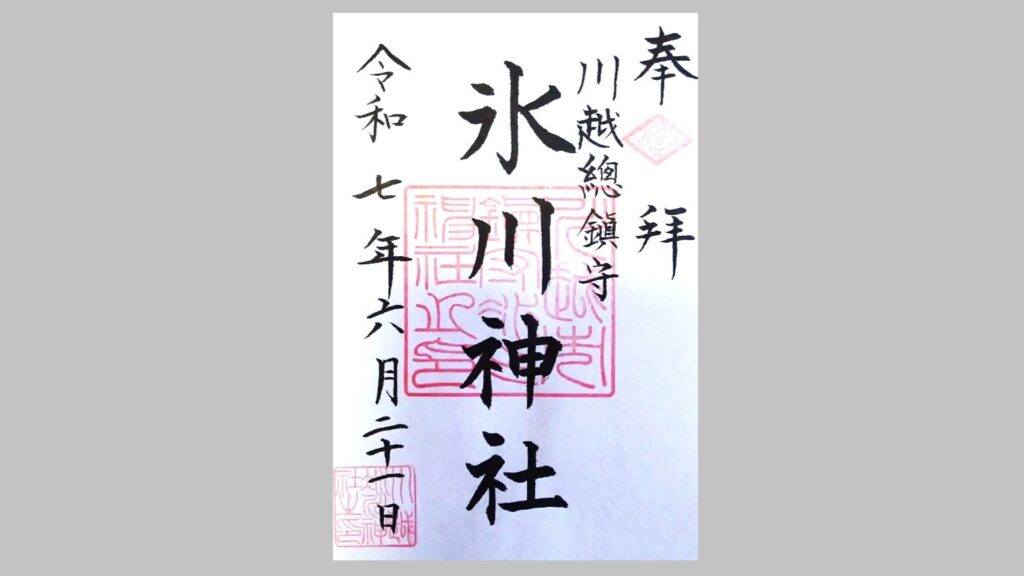 奉拜
川越總鎮守
氷川神社
令和七年六月二十一日